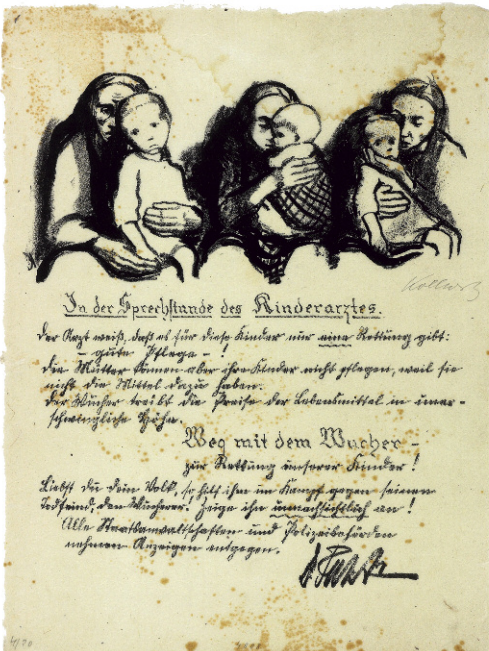 Kollwitz
In der Sprechstunde des Kinderarztes.
Der Arzt weiß, daß es für diese Kinder nur eine Rettung gibt:
- gute Pflege -!
Die Mütter können aber ihre Kinder nicht pflegen, weil sie
nicht die Mittel dazu haben.
Der Wucher treibt die Preise der Lebensmittel in uner-
schwingliche Höhe.
Weg mit dem Wucher -
zur Rettung unserer Kinder!
Liebst du dein Volk, so hilf ihm im Kampf gegen seinen
Todfeind, den Wucherer! Zeige ihn unnachsichtlich an!
Alle Staatsanwaltschaften und Polizeibehörden
nehmen Anzeigen entgegen.